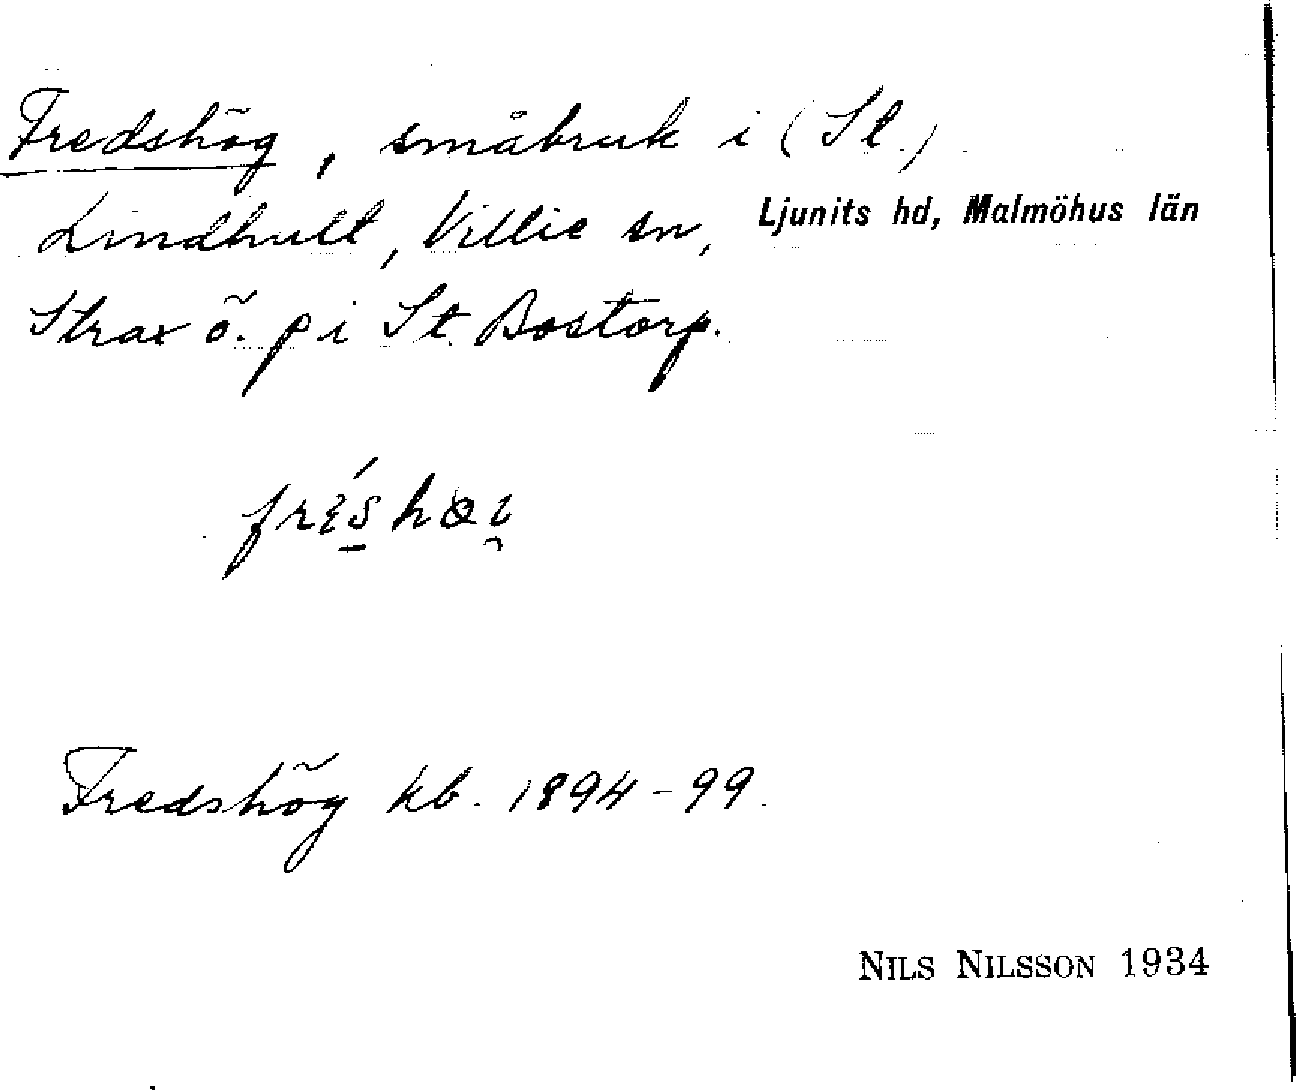 Fredshög, småbruk i (St.)
Lindhult, Villie sn, Ljunits hd, Malmöhus län
Strax ö. p i St. Bostorp.
frɛ́s høi̯
Fredshög kb. 1894-99.
NILS NILSSON 1934